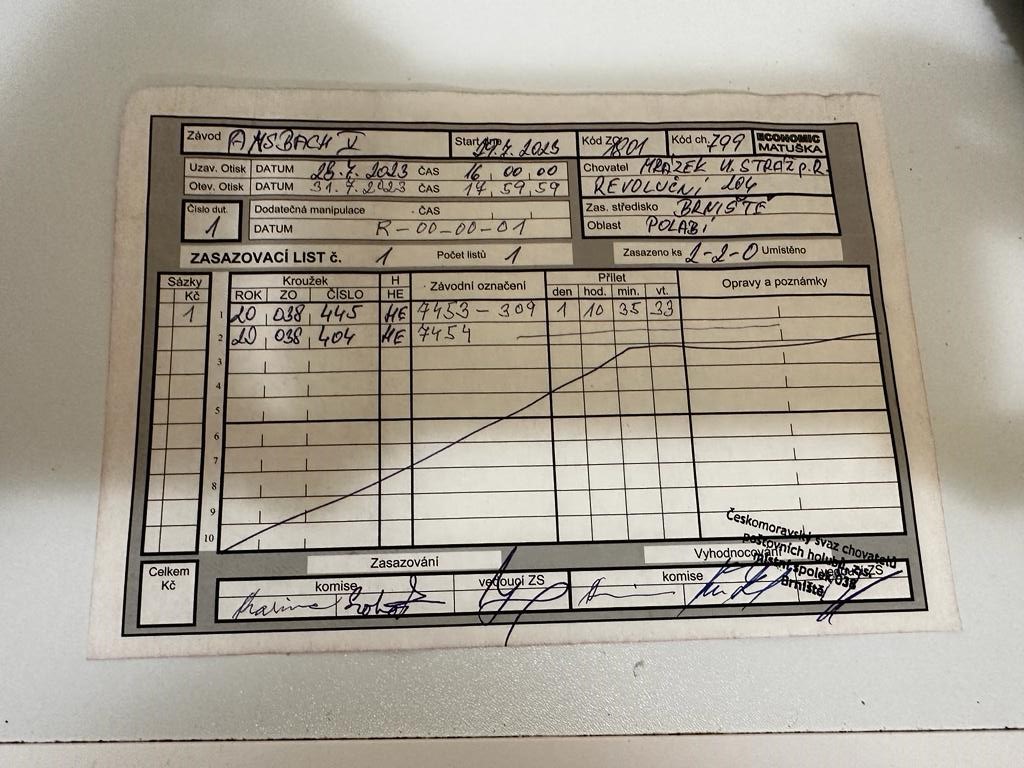 Závod ANSBACH V Start dne 29.7.2023 Kód ZO 1801 Kód ch. 799 ECONOMIC MATUŠKA
Uzav. Otisk DATUM 28.7.2023 ČAS 16,00,00
Otev. Otisk DATUM 31.7.2023 ČAS 17,59,59
Chovatel MRÁZEK V. STRÁŽ p.R.
REVOLUČNÍ 204
Číslo dut. 1 Dodatečná manipulace ČAS
DATUM R-00-00-01
Zas. středisko BRNIŠTĚ
Oblast POLABÍ
ZASAZOVACÍ LIST č. 1 Počet listů 1 Zasazeno ks 2-2-0 Umístěno
Sázky Kč Kroužek H HE Závodní označení Přílet Opravy a poznámky
ROK ZO ČÍSLO den hod. min. vt.
1 1 20 038 445 HE 7453-309 1 10 35 33
2 20 038 404 HE 7454
3
4
5
6
7
8
9
10
Celkem Kč Zasazování Vyhodnocování
komise vedoucí ZS komise vedoucí ZS
Českomoravský svaz chovatelů
poštovních holubů, z.s.
místní spolek 038
Brniště